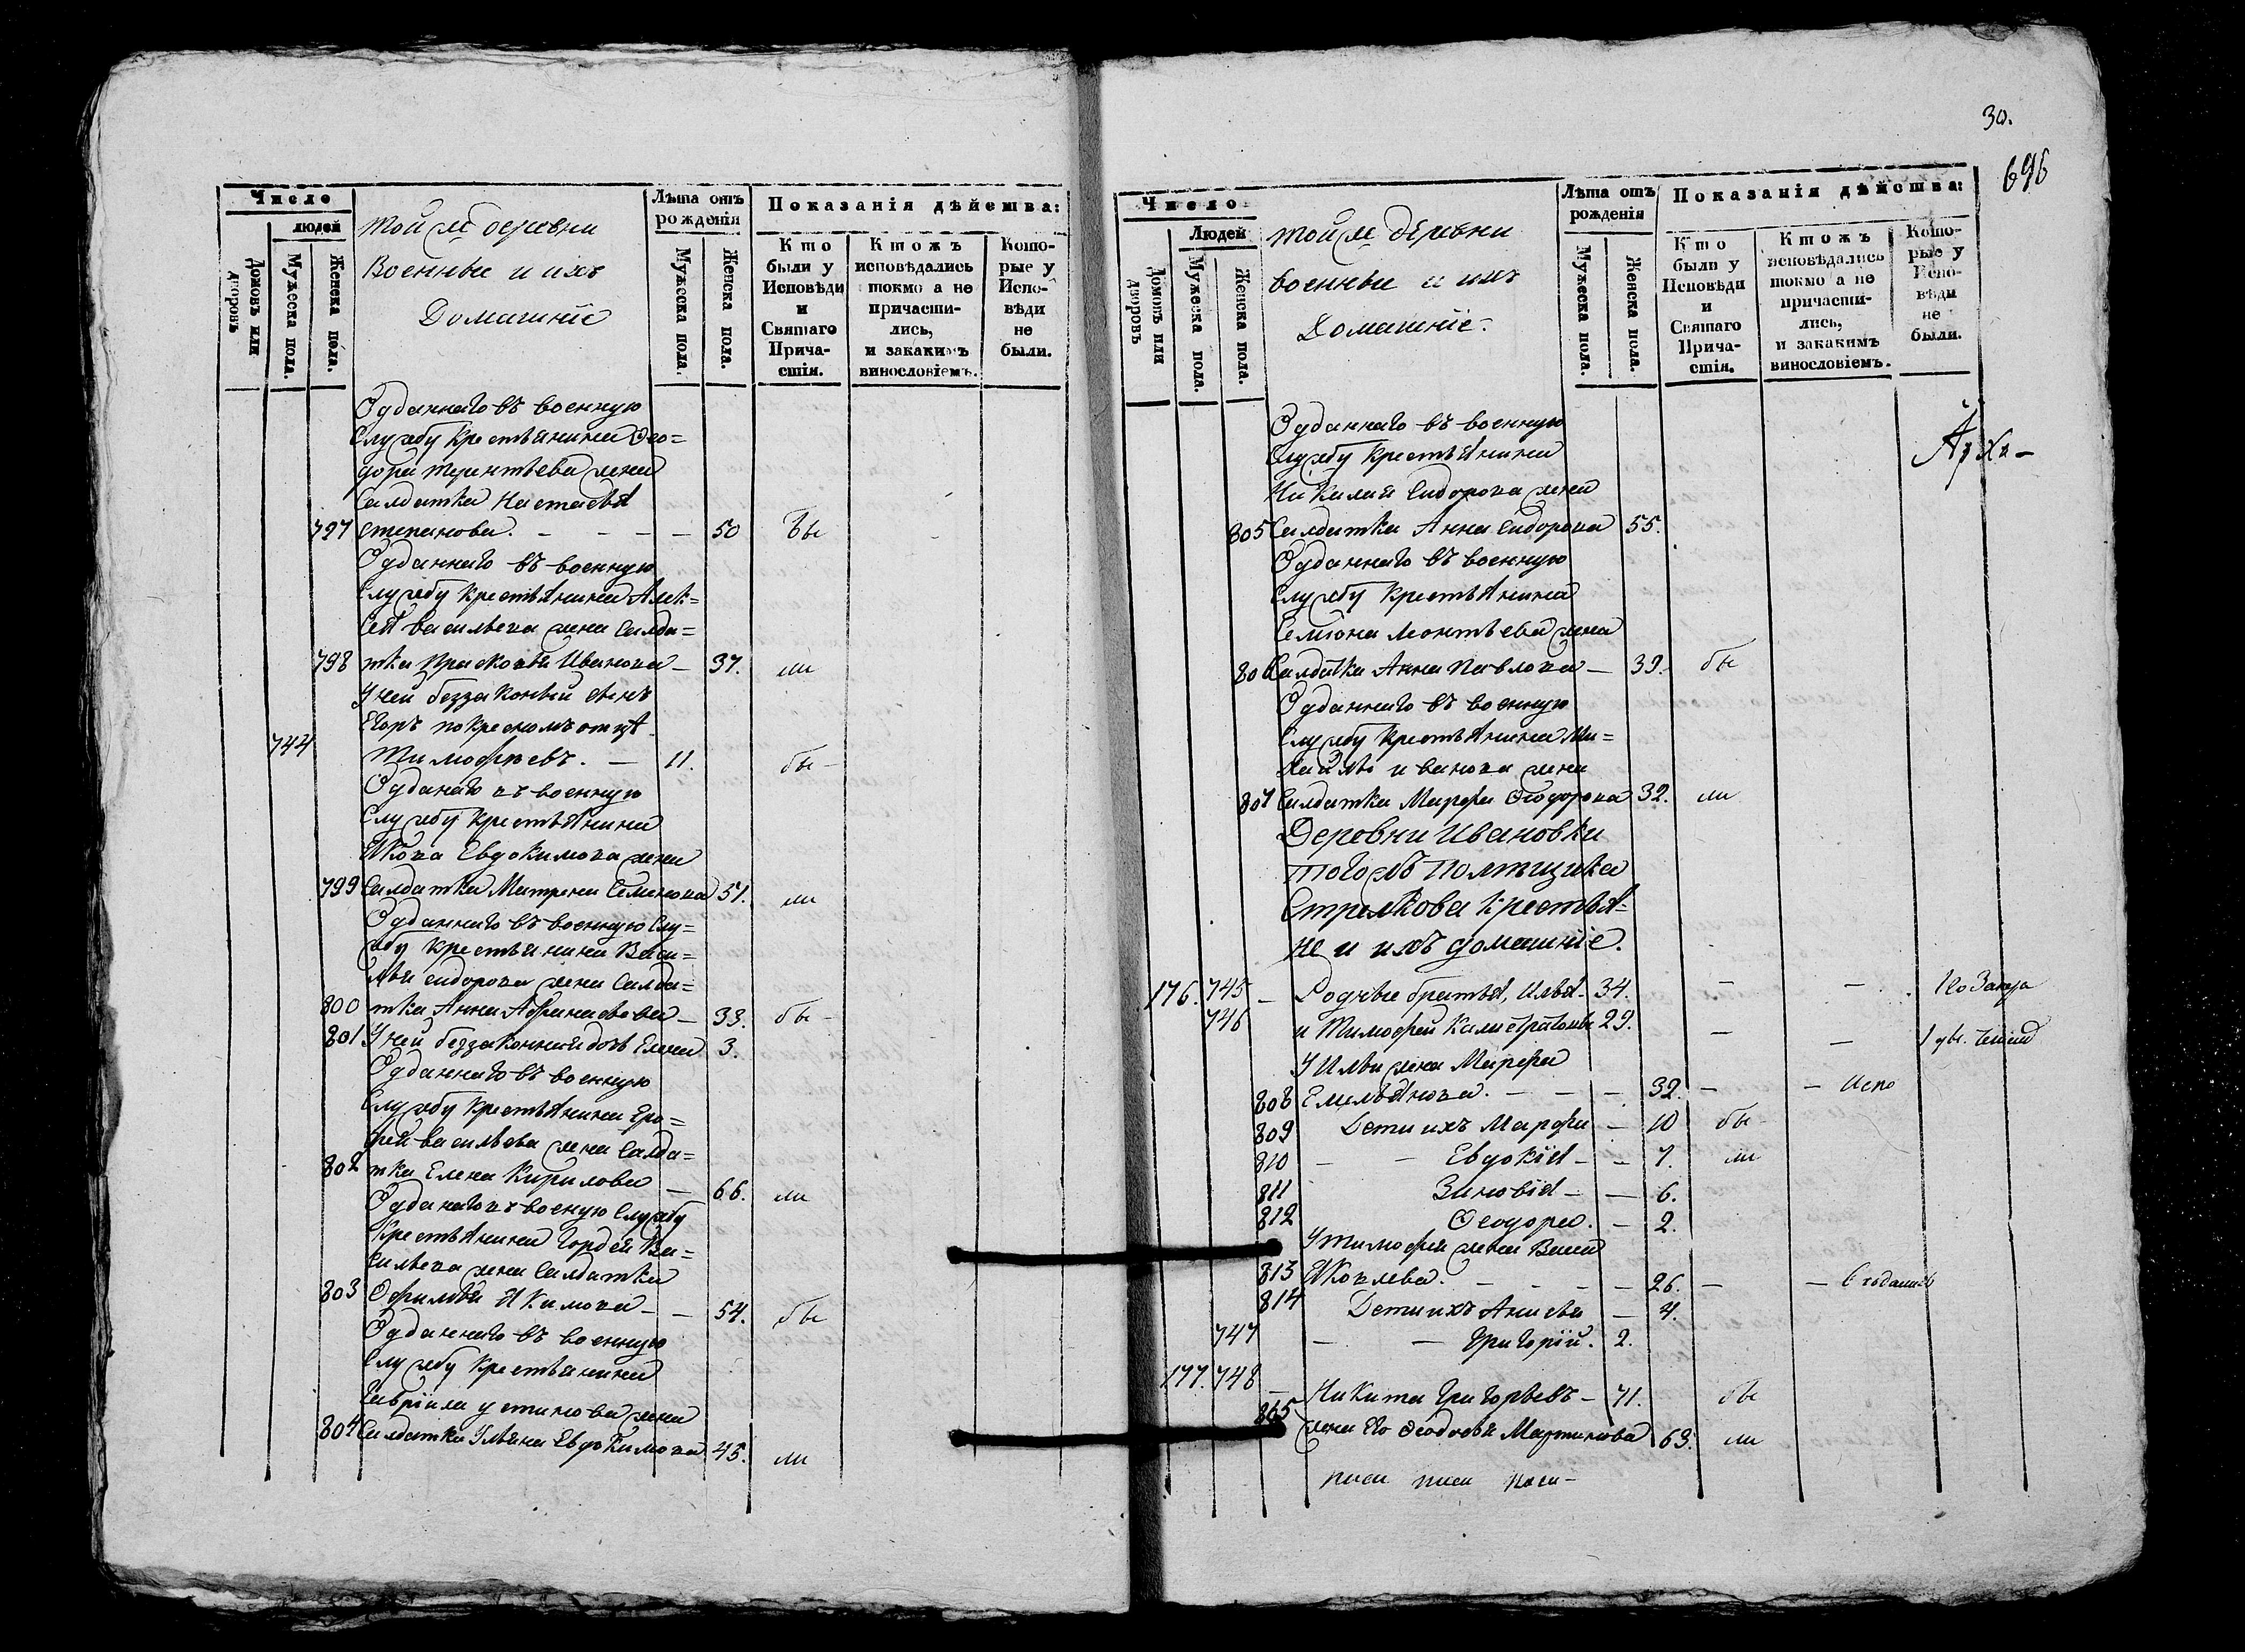 Число
людей
Домовъ или дворовъ
Мужеска пола.
Женска пола.
той же деревни
Военные и ихъ
Домашніе
Лѣта отъ рожденія
Мужеска пола.
Женска пола.
Показанія дѣйства:
Кто были у Исповѣди и Святаго Причастія.
Ктожъ исповѣдались токмо а не причастились, и закакимъ винословіемъ.
Которые у Исповѣди не были.
Одданнаго въ военную
Службу крестьянина Ѳео=
дора терентьева жена
Салдатка Настасья
797 Степанова. — — — — 50 бы
Одданнаго въ военную
Службу крестьянина Алек=
сея васильева жена Салда=
798 тка Прасковья Иванова — 37. ли
У ней беззаконный сынъ
Егоръ по кресномъ отцѣ
744 Тимофеевъ. — 11. бы —
Одданаго въ военную
Службу крестьянина
Якова Евдокимова жена
799 Салдатка Матрена Семенова 51. ли
Одданнаго въ военную Слу=
жбу крестьянина Васи=
лья сидорова жена Салда=
800 тка Анна Афанасьева — 33. бы —
801 У ней беззаконная дочь Елена 3.
Одданнаго въ военную
Службу крестьянина Еро=
фея васильева жена Салда=
802 тка Елена Кирилова — 66. ли
Одданаго въ военую Службу
Крестьянина Гордея Ва=
сильева жена Салдатка
803 Офимья Якимова — — 54. бы
Одданнаго въ военную
Службу крестьянина
Гавріила устинова жена
804 Салдатка Ульяна Евдокимова 45. ли
30.
696
Число
Людей
Домовъ или дворовъ
Мужеска пола.
Женска пола.
той же деревни
военные и ихъ
Домашніе.
Лѣта отъ рожденія
Мужеска пола.
Женска пола.
Показанія дѣйства:
Кто были у Исповѣди и Святаго Причастія.
Ктожъ исповѣдались токмо а не причастились, и закакимъ винословіемъ.
Которые у Исповѣди не были.
Одданнаго въ военную
Службу крестьянина
Николая Сидорова жена
805 Салдатка Анна Сидорова 55.
Одданнаго въ военную
Службу крестьянина
Семіона Леонтьева жена
806 Салдатка Анна Павлова — 39. бы
Одданнаго въ военную
Службу крестьянина Ми=
хайло иванова жена
807 Салдатка Марфа Ѳеодорова 32. ли
Деревни Ивановки
тогожъ помѣщика
Стрелкова крестья=
не и ихъ домашніе.
176. 745 — Родные братья, Илья — 34. — —
746 и Тимофей Калистратовы 29. — —
У Ильи жена Марфа
808 Емельянова. — — — 32. — — Испо
809 Дети ихъ Марфа — 10 бы
810 — — Евдокія — — 7. ли
811 Зиновія — — 6.
812 Ѳеодора. — 2.
У тимофея жена Васса
813 Яковлева. — — — — 26. —
814 Дети ихъ Анисья — 4.
747 — — Григорій. 2.
177. 748 — Никита Григорьевъ — 71. бы
815 жена Его Ѳеодосья Мартинова 63. ли